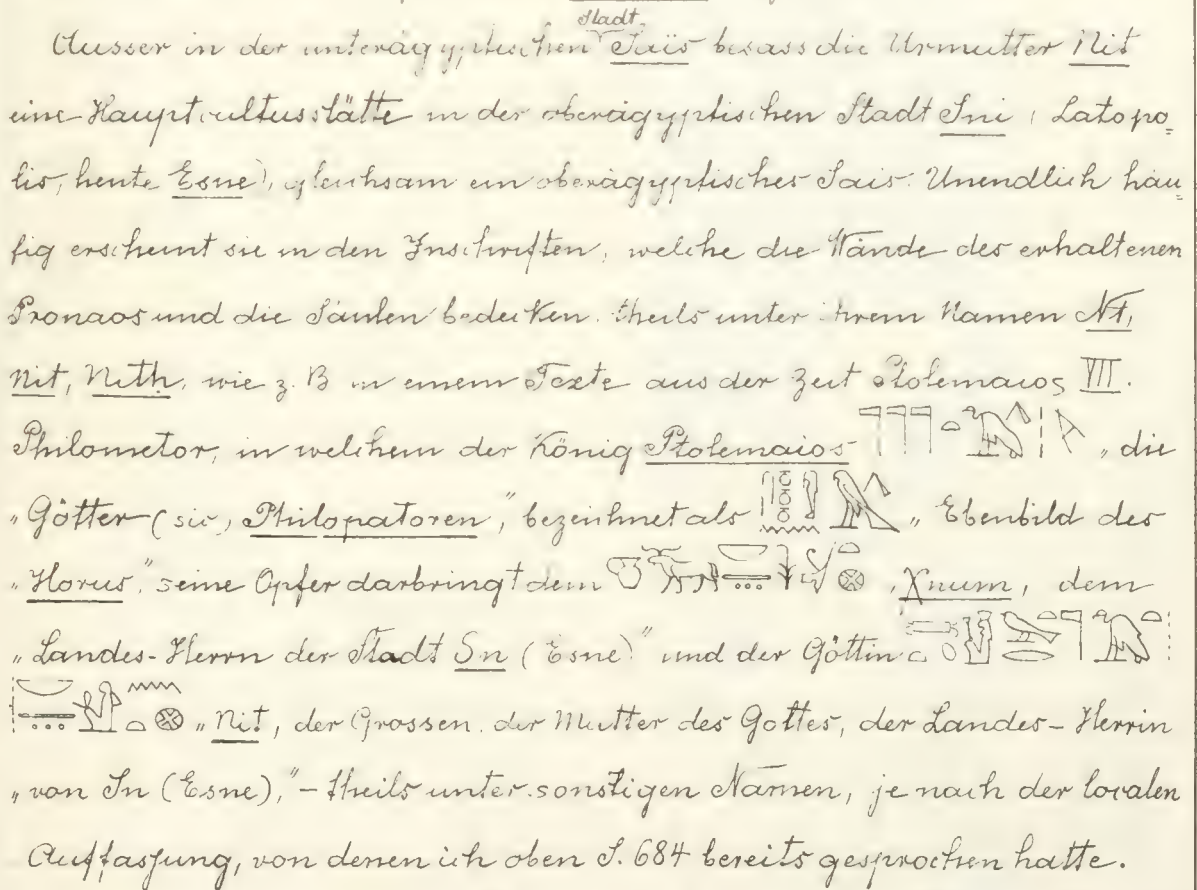 Ausser in der unterägyptischen Stadt Saïs besass die Urmutter Nit
eine Hauptcultusstätte in der oberägyptischen Stadt Sni (Latopo=
lis, heute Esne), gleichsam ein oberägyptisches Sais. Unendlich häu=
fig erscheint sie in den Inschriften, welche die Wände des erhaltenen
Pronaos und die Säulen bedecken, theils unter ihrem Namen Nt,
Nit, Neth, wie z. B in einem Texte aus der Zeit Ptolemaios VII.
Philometor, in welchem der König Ptolemaios „die
„Götter (sic) Philopatoren", bezeichnet als „Ebenbild des
„Horus", seine Opfer darbringt dem „Xnum, dem
„Landes-Herrn der Stadt Sn (Esne)" und der Göttin
„Nit, der Grossen, der Mutter des Gottes, der Landes-Herrin
„von Sn (Esne)," – theils unter sonstigen Namen, je nach der localen
Auffassung, von denen ich oben S. 684 bereits gesprochen hatte.